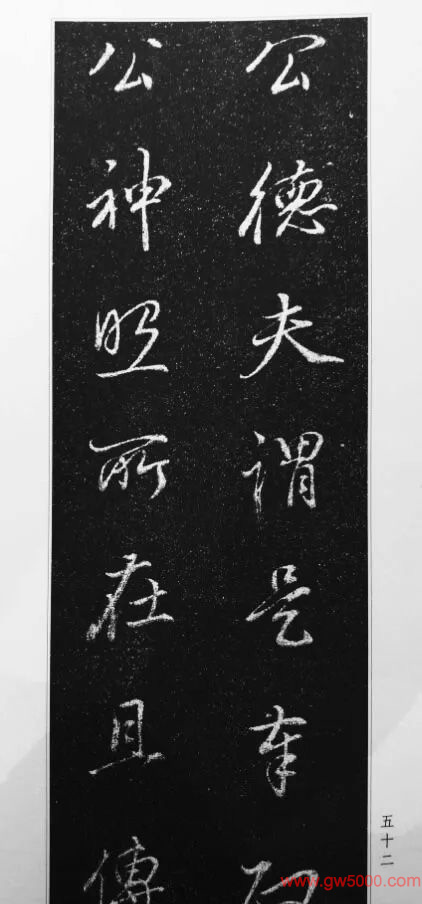 公德夫謂是奉
公神照所在且傳
五十二
www.gw5000.com